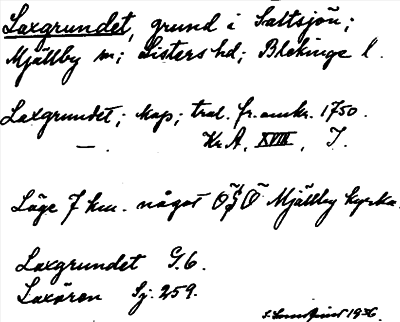 Laxgrundet, grund i Saltsjön;
Mjällby sn; Listers hd; Blekinge l.
Laxgrundet; Map; tral. fr. omkr. 1750.
— . Kr. A. XVIII, I.
Läge 7 km. något ÖSÖ Mjällby kyrka.
Laxgrundet G.6.
Laxören Sj. 259.
1936.